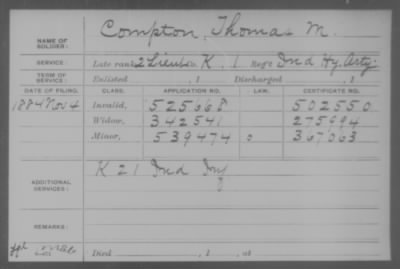 NAME OF SOLDIER: Compton, Thomas M.
SERVICE: Late rank 2 Lieut Co. K, 1 Reg't Ind Hy. Arty.
TERM OF SERVICE: Enlisted , 1 Discharged , 1
DATE OF FILING. CLASS. APPLICATION NO. LAW. CERTIFICATE NO.
1884 Nov 4 Invalid, 525668 502550
Widow, 342541 275994
Minor, 539474 0 367063
ADDITIONAL SERVICES: K 21 Ind Inf
REMARKS:
Died , 1 , at